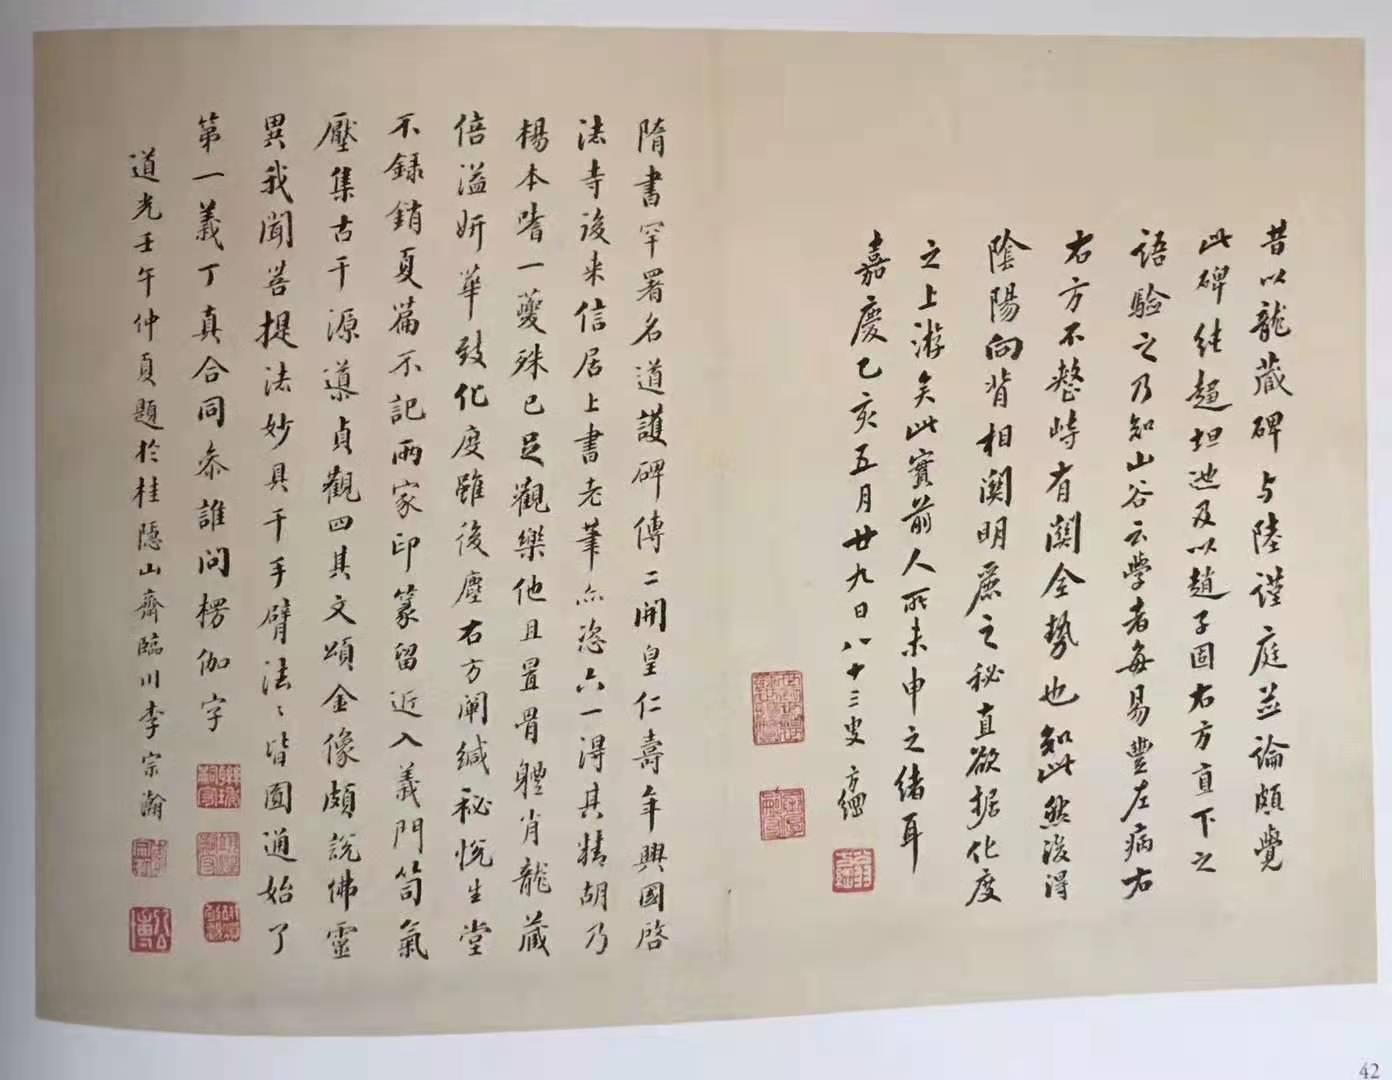 昔以龍藏碑与陸謹庭並論頗覺
此碑純超坦迤及以趙子固右方直下之
語驗之乃知山谷云學者每易豐左病右
右方不整峙有關全勢也知此然後得
陰陽向背相關明麗之秘直欲据化度
之上游矣此實前人所未申之緒耳
嘉慶乙亥五月廿九日八十三叟方綱
隋書罕署名道護碑傳二開皇仁壽年興國啓
法寺後来信居上書老筆亦恣六一淂其精胡乃
楊本嗜一夔殊已足觀樂他且置骨軆肖龍藏
倍溢妍華致化度雖後塵右方闡緘秘悅生堂
不録銷夏篇不記兩家印篆留近入義門笥氣
壓集古千源導貞觀四其文頌金像頗說佛靈
異我聞菩提法妙具千手臂法〻皆圓通始了
第一義丁真合同參誰问楞伽字
道光壬午仲夏題於桂隱山齋臨川李宗瀚
42